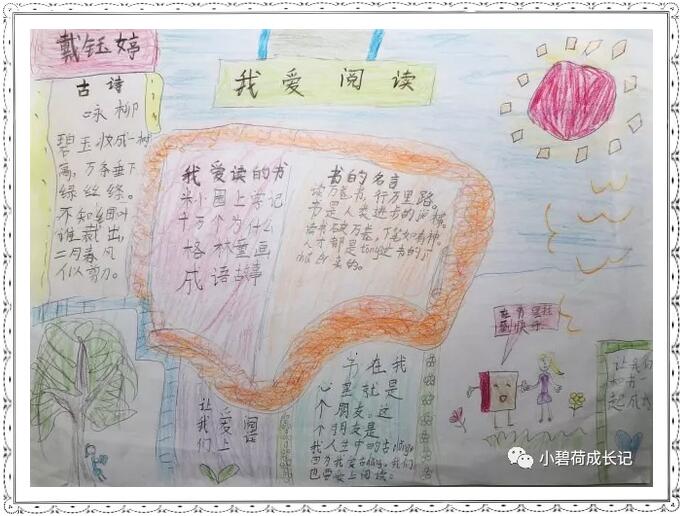 戴钰婷
我爱阅读
古诗
咏柳
碧玉妆成一树
高，万条垂下
绿丝绦。
不知细叶
谁裁出，
二月春风
似剪刀。
我爱读的书
米小圈上学记
十万个为什么
格林童画
成语古事
书的名言
读万卷书，行万里路。
书是人类进步的阶梯。
读书破万卷，下笔如有神。
人才都是tōng过书的
让我们
爱上
阅读
书在我
心里就是
个朋友，这
个朋友是
我人生中的
我们
要上阅读。
在书里找
到快乐
让我们
和书一
起成长
小碧荷成长记